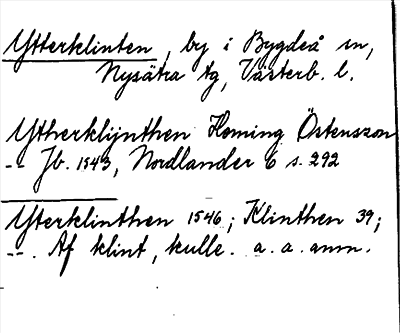 Ytterklinten, by i Bygdeå sn,
Nysätra tg, Västerb. l.
Ytherklijnthen Heming Östensson
-- Jb. 1543, Nordlander 6 s. 292
Yterklinthen 1546; Klinthen 39;
--. Af klint, kulle. a. a. anm.